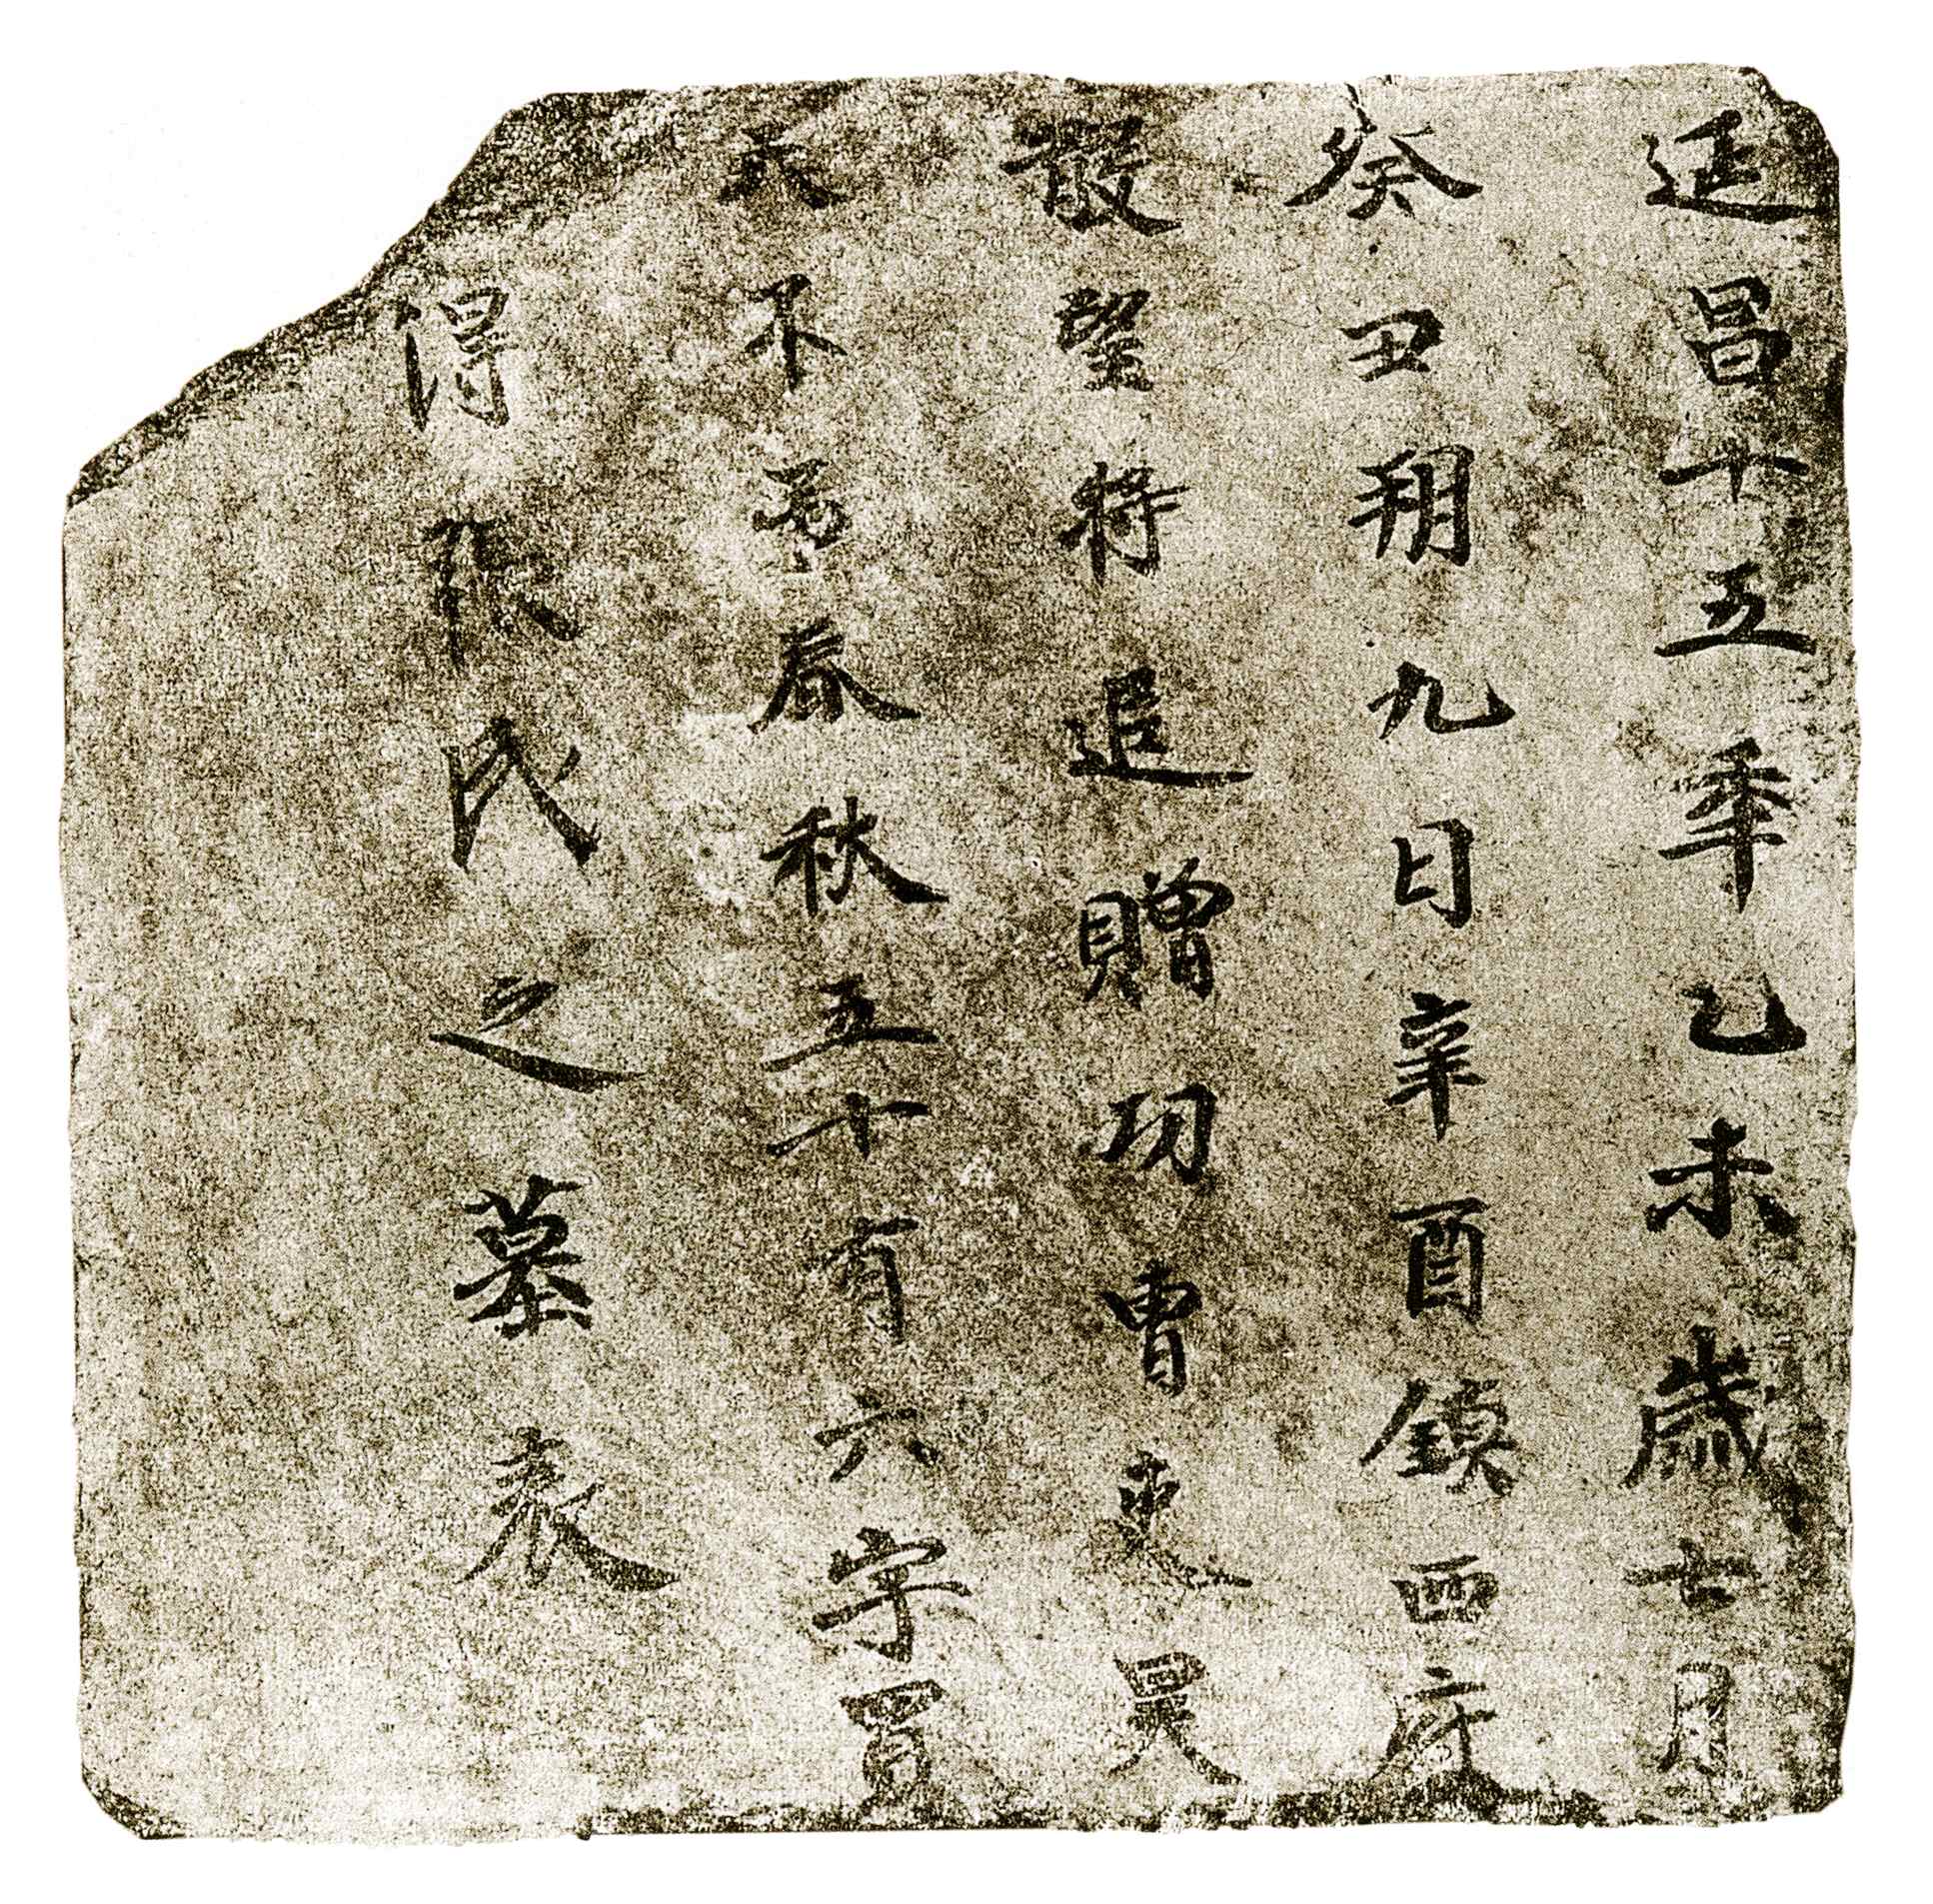 延昌十五年乙未歲七月
癸丑朔九日辛酉鎮西府
散望將追贈功曹吏昊
天不弔春秋五十有六字買
得張氏之墓表